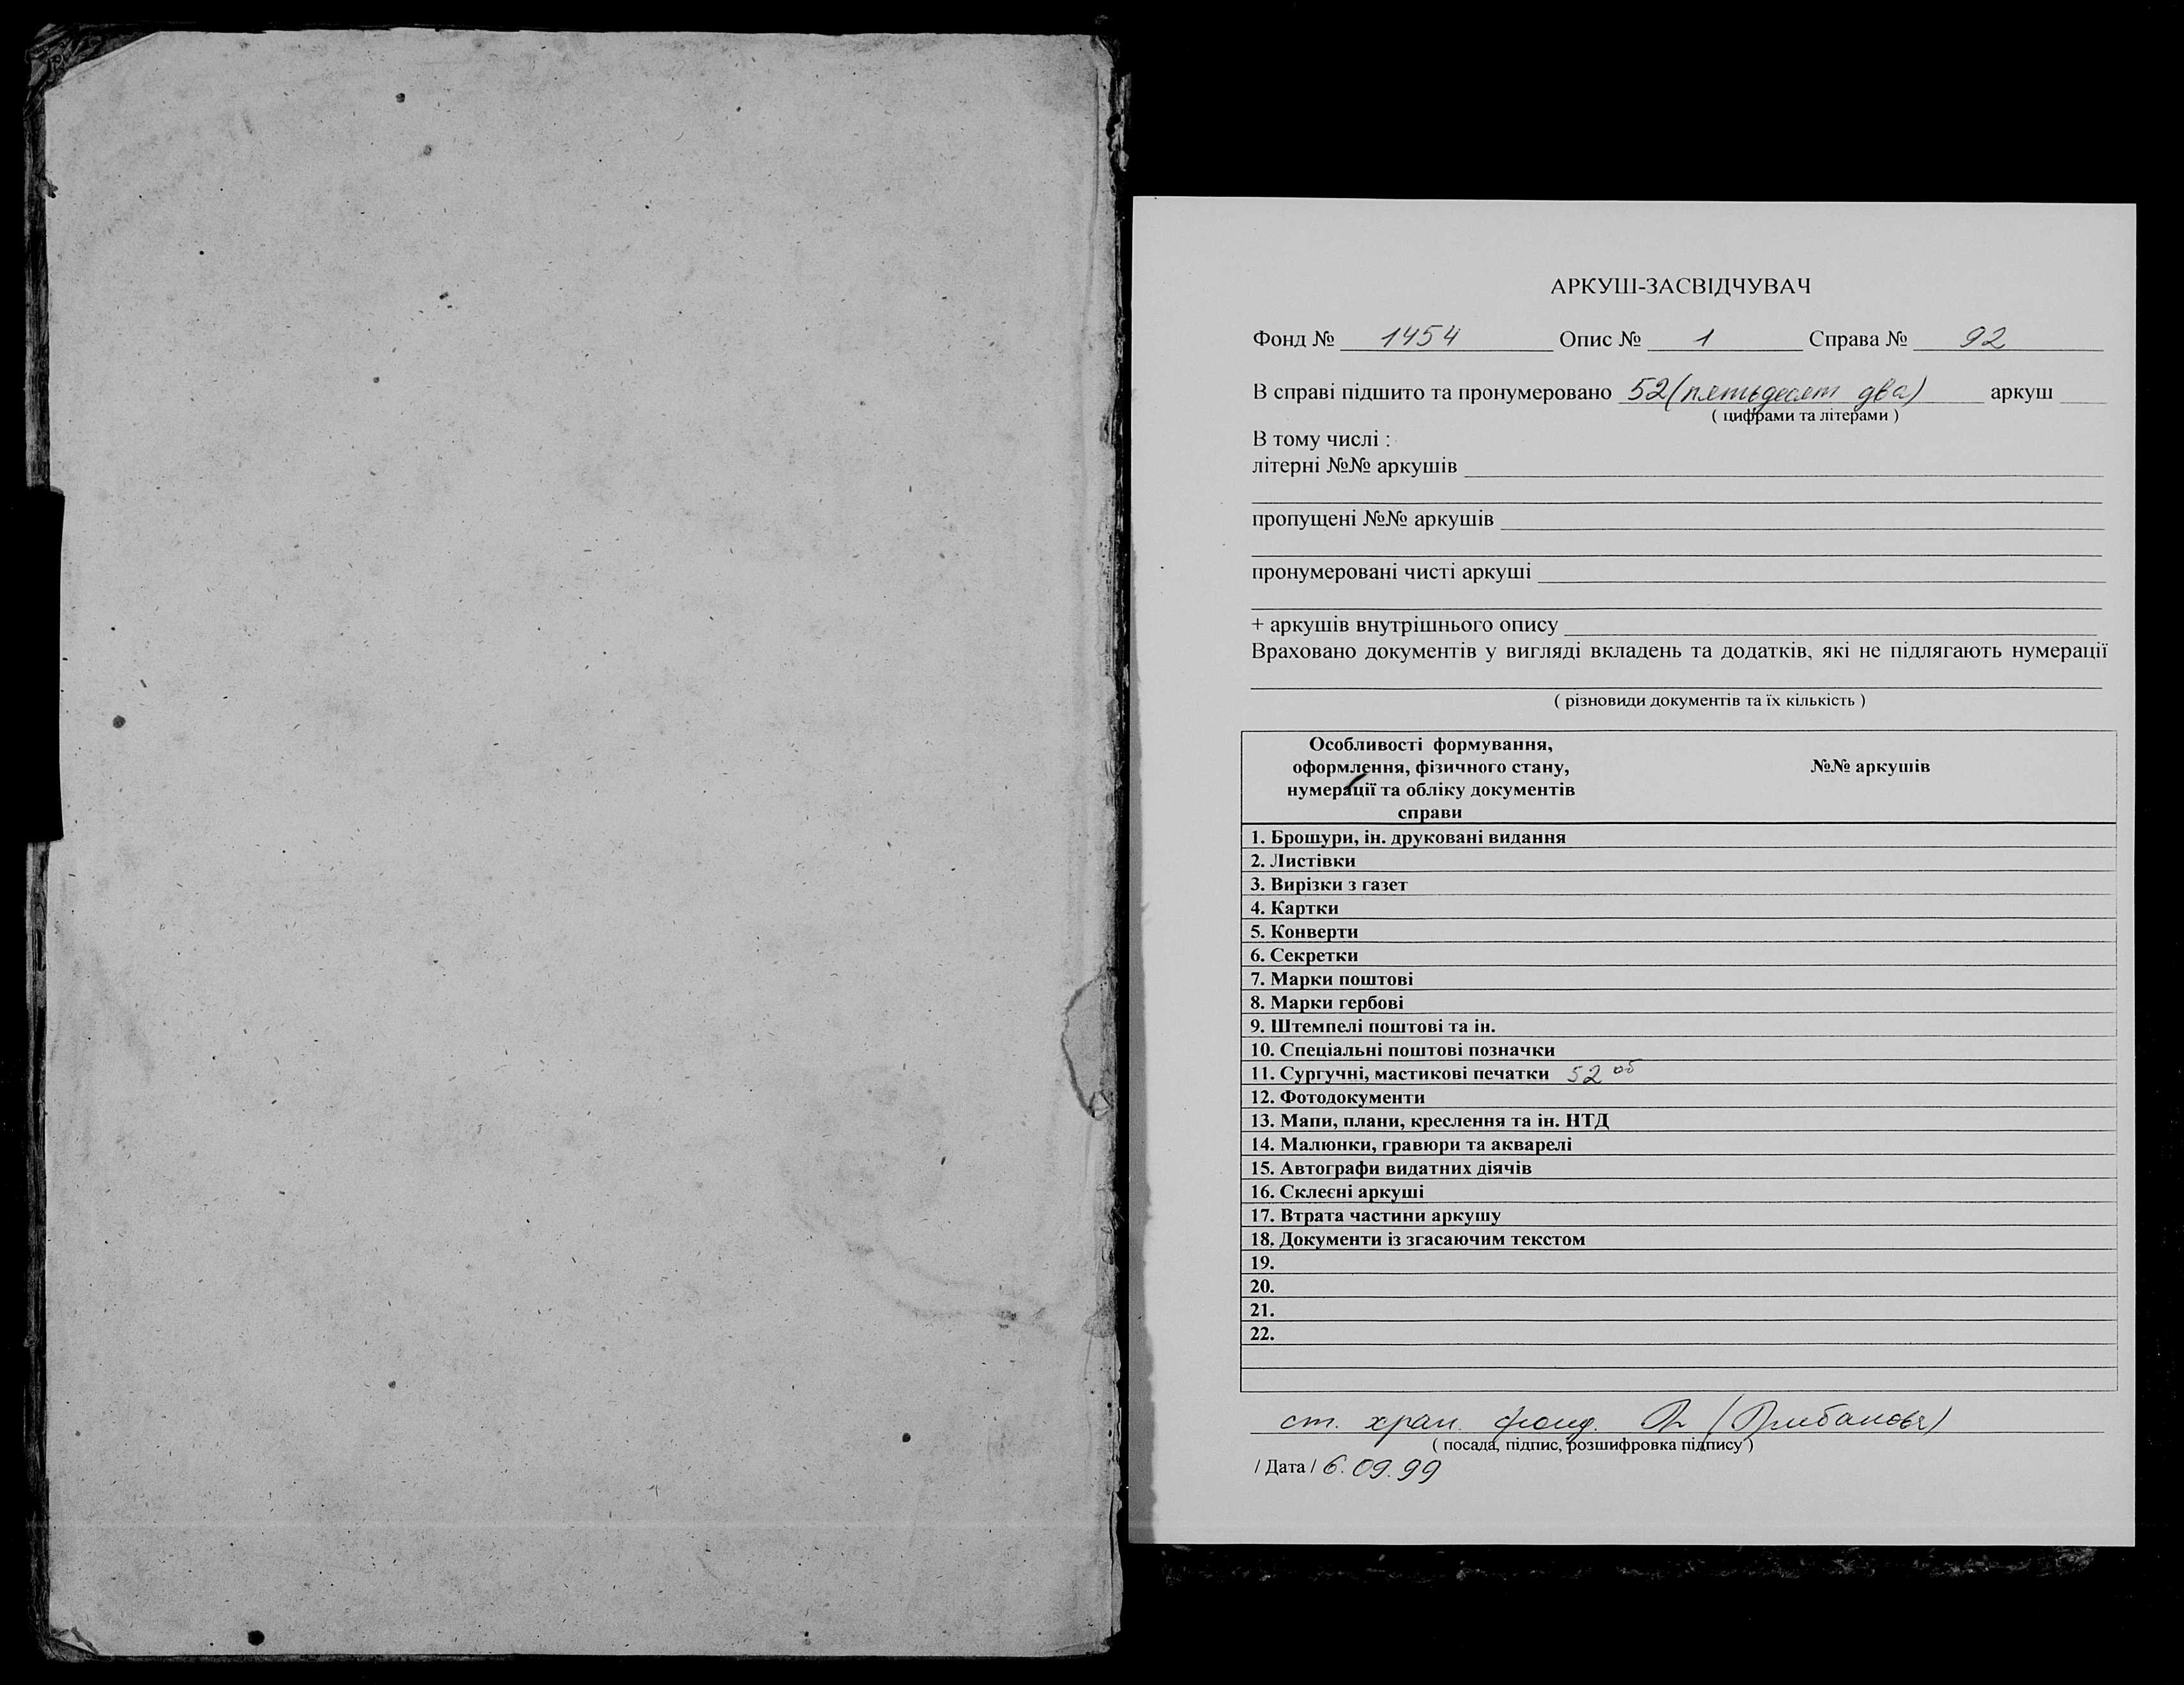 АРКУШ-ЗАСВІДЧУВАЧ
Фонд № 1454 Опис № 1 Справа № 92
В справі підшито та пронумеровано 52 (пятьдесят два) аркуш
( цифрами та літерами )
В тому числі :
літерні №№ аркушів
пропущені №№ аркушів
пронумеровані чисті аркуші
+ аркушів внутрішнього опису
Враховано документів у вигляді вкладень та додатків, які не підлягають нумерації
( різновиди документів та їх кількість )
Особливості формування,
оформлення, фізичного стану,
нумерації та обліку документів
справи
№№ аркушів
1. Брошури, ін. друковані видання
2. Листівки
3. Вирізки з газет
4. Картки
5. Конверти
6. Секретки
7. Марки поштові
8. Марки гербові
9. Штемпелі поштові та ін.
10. Спеціальні поштові позначки
11. Сургучні, мастикові печатки 52 об
12. Фотодокументи
13. Мапи, плани, креслення та ін. НТД
14. Малюнки, гравюри та акварелі
15. Автографи видатних діячів
16. Склеєні аркуші
17. Втрата частини аркушу
18. Документи із згасаючим текстом
19.
20.
21.
22.
ст. хран. фонд.
( посада, підпис, розшифровка підпису )
/ Дата / 6.09.99